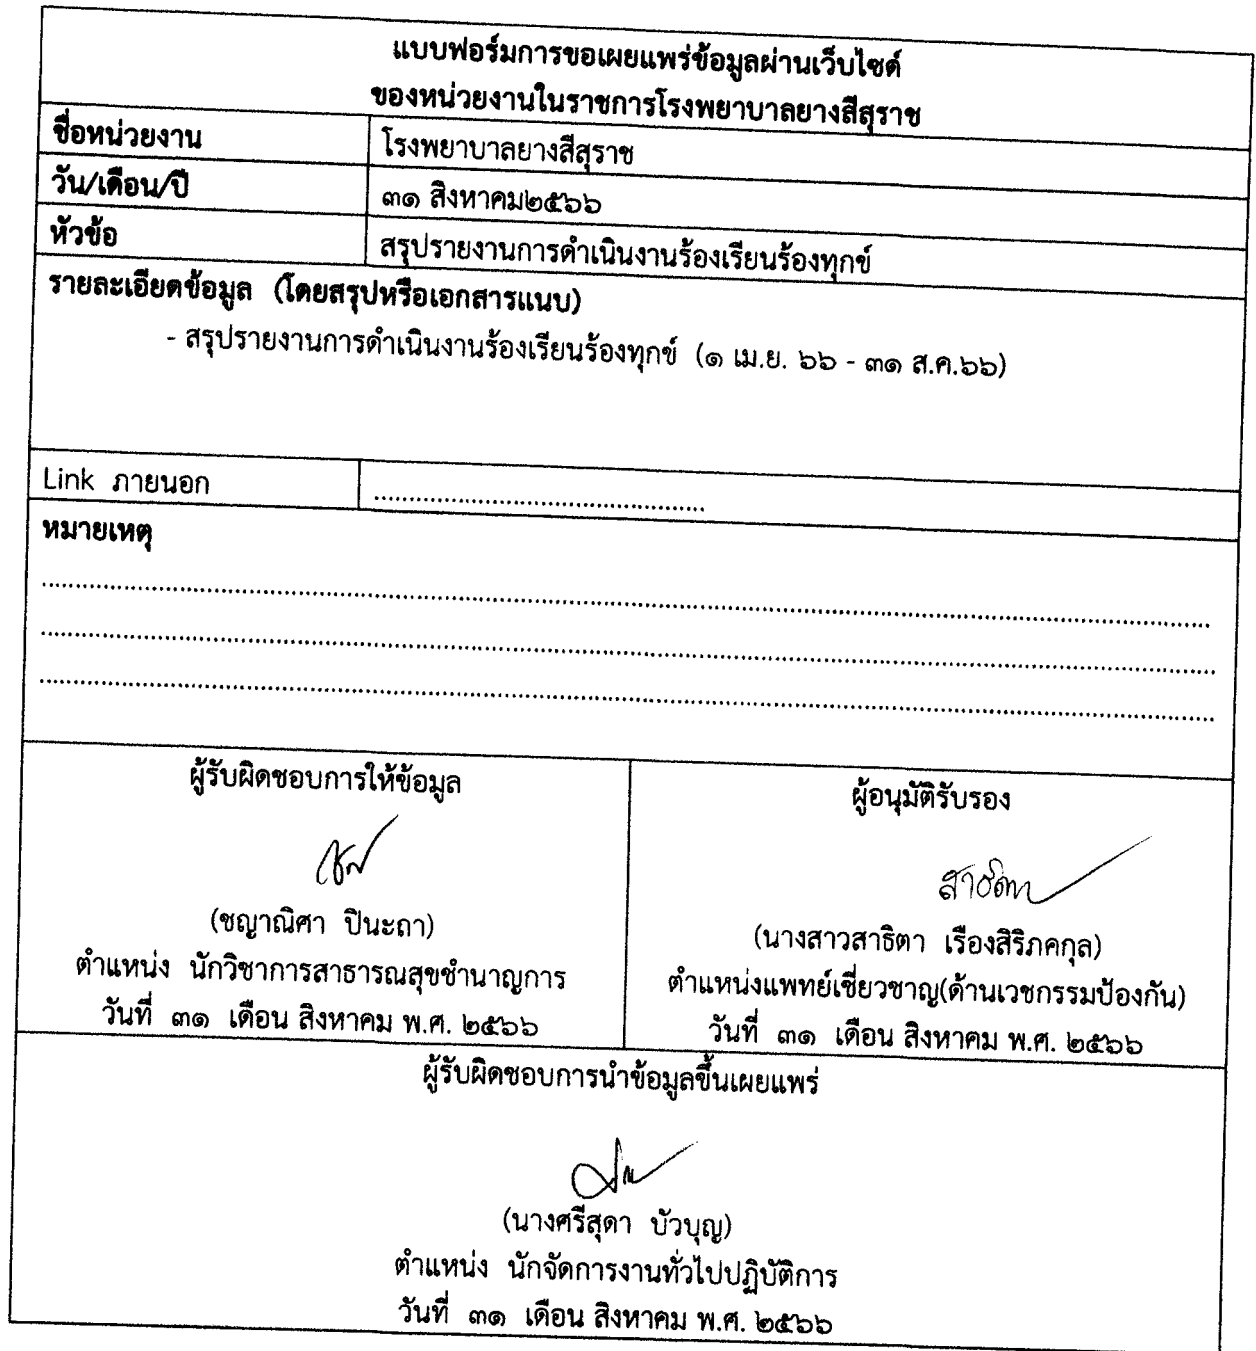 แบบฟอร์มการขอเผยแพร่ข้อมูลผ่านเว็บไซต์
ของหน่วยงานในราชการโรงพยาบาลยางสีสุราช
ชื่อหน่วยงาน โรงพยาบาลยางสีสุราช
วัน/เดือน/ปี ๓๑ สิงหาคม๒๕๖๖
หัวข้อ สรุปรายงานการดำเนินงานร้องเรียนร้องทุกข์
รายละเอียดข้อมูล (โดยสรุปหรือเอกสารแนบ)
- สรุปรายงานการดำเนินงานร้องเรียนร้องทุกข์ (๑ เม.ย. ๖๖ - ๓๑ ส.ค.๖๖)
Link ภายนอก ................................................
หมายเหตุ
ผู้รับผิดชอบการให้ข้อมูล
(ชญาณิศา ปินะถา)
ตำแหน่ง นักวิชาการสาธารณสุขชำนาญการ
วันที่ ๓๑ เดือน สิงหาคม พ.ศ. ๒๕๖๖
ผู้อนุมัติรับรอง
สาธิตา
(นางสาวสาธิตา เรืองสิริภคกุล)
ตำแหน่งแพทย์เชี่ยวชาญ(ด้านเวชกรรมป้องกัน)
วันที่ ๓๑ เดือน สิงหาคม พ.ศ. ๒๕๖๖
ผู้รับผิดชอบการนำข้อมูลขึ้นเผยแพร่
(นางศรีสุดา บัวบุญ)
ตำแหน่ง นักจัดการงานทั่วไปปฏิบัติการ
วันที่ ๓๑ เดือน สิงหาคม พ.ศ. ๒๕๖๖